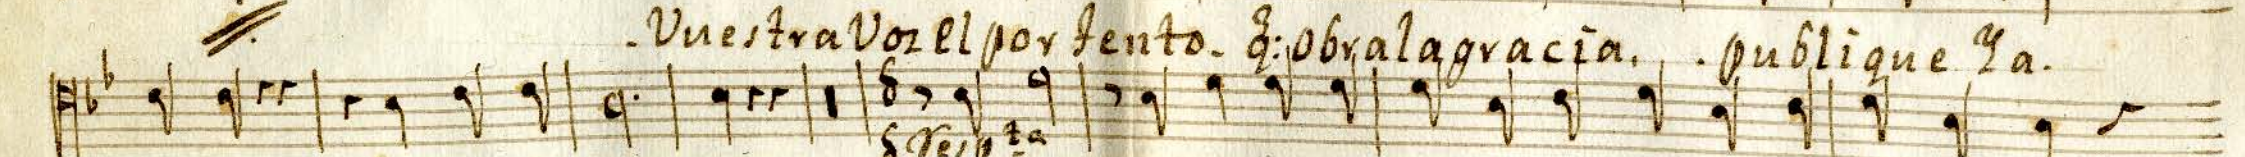 Vuestra Voz el portento. q̃: obra la gracia. . publique Ya.
Resp.ta